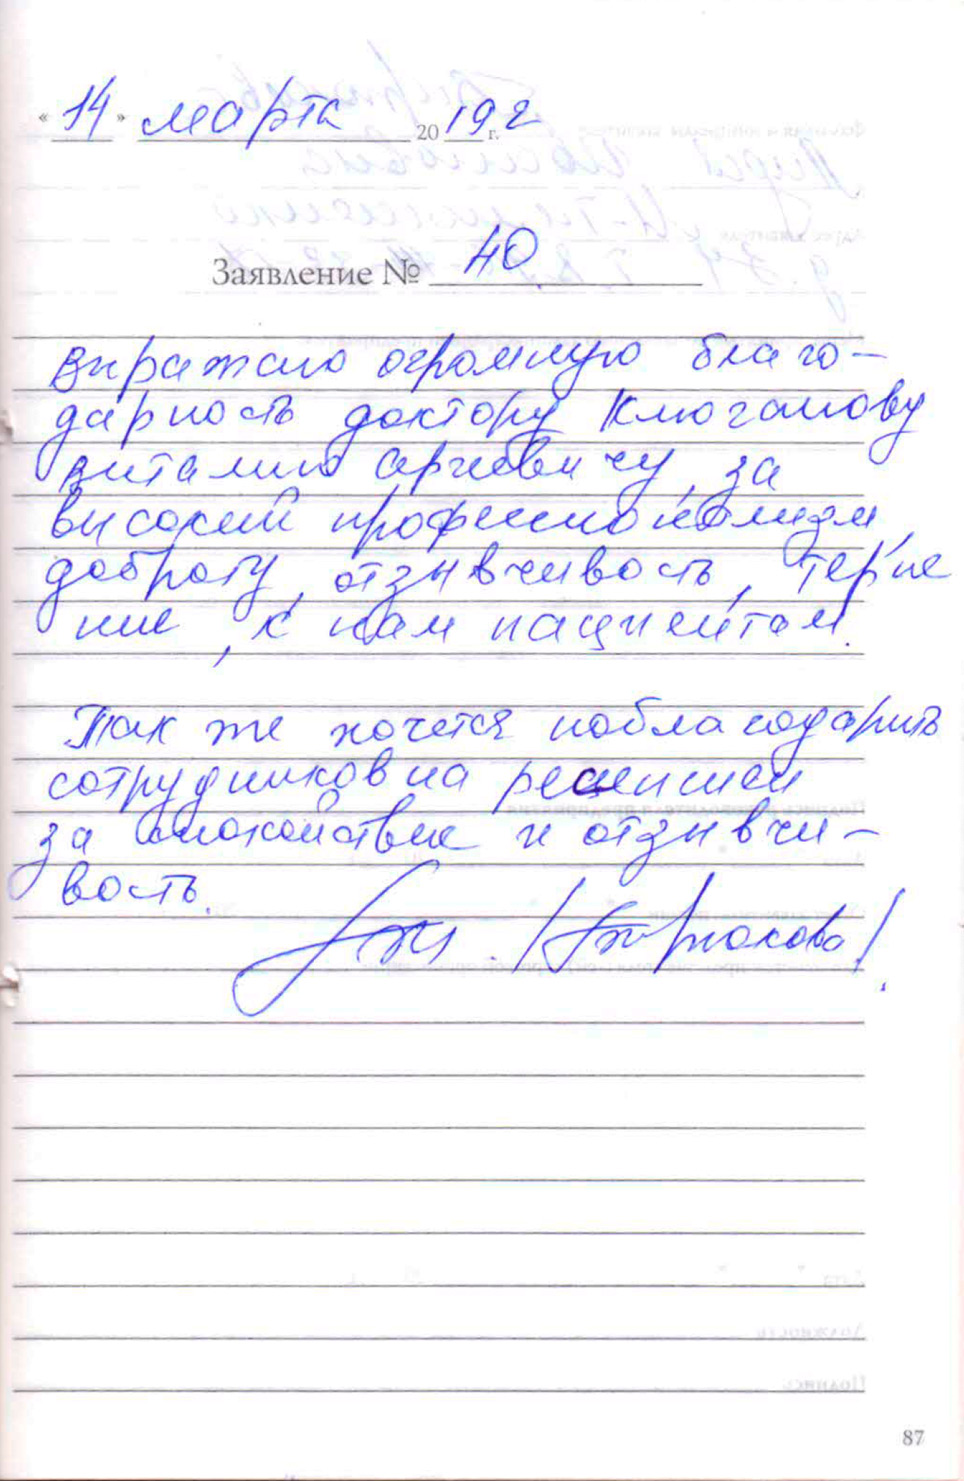 « 14 » марта 2019 г.
Заявление № 40
выражаю огромную благо-
дарность доктору
Виталию Сергеевичу, за
высокий профессионализм,
доброту, отзывчивость, терпе
ние, к нам пациентам.
Так же хочется поблагодарить
сотрудников на рецепшен
за спокойствие и отзывчи-
вость.
/Бирюкова/
87